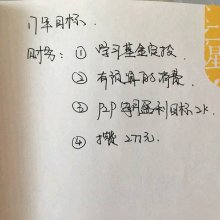 17年目标.
财务: ① 学习基金定投
② 有预算的消费
③ P2P 年利盈利目标2k
④ 攒2万元.